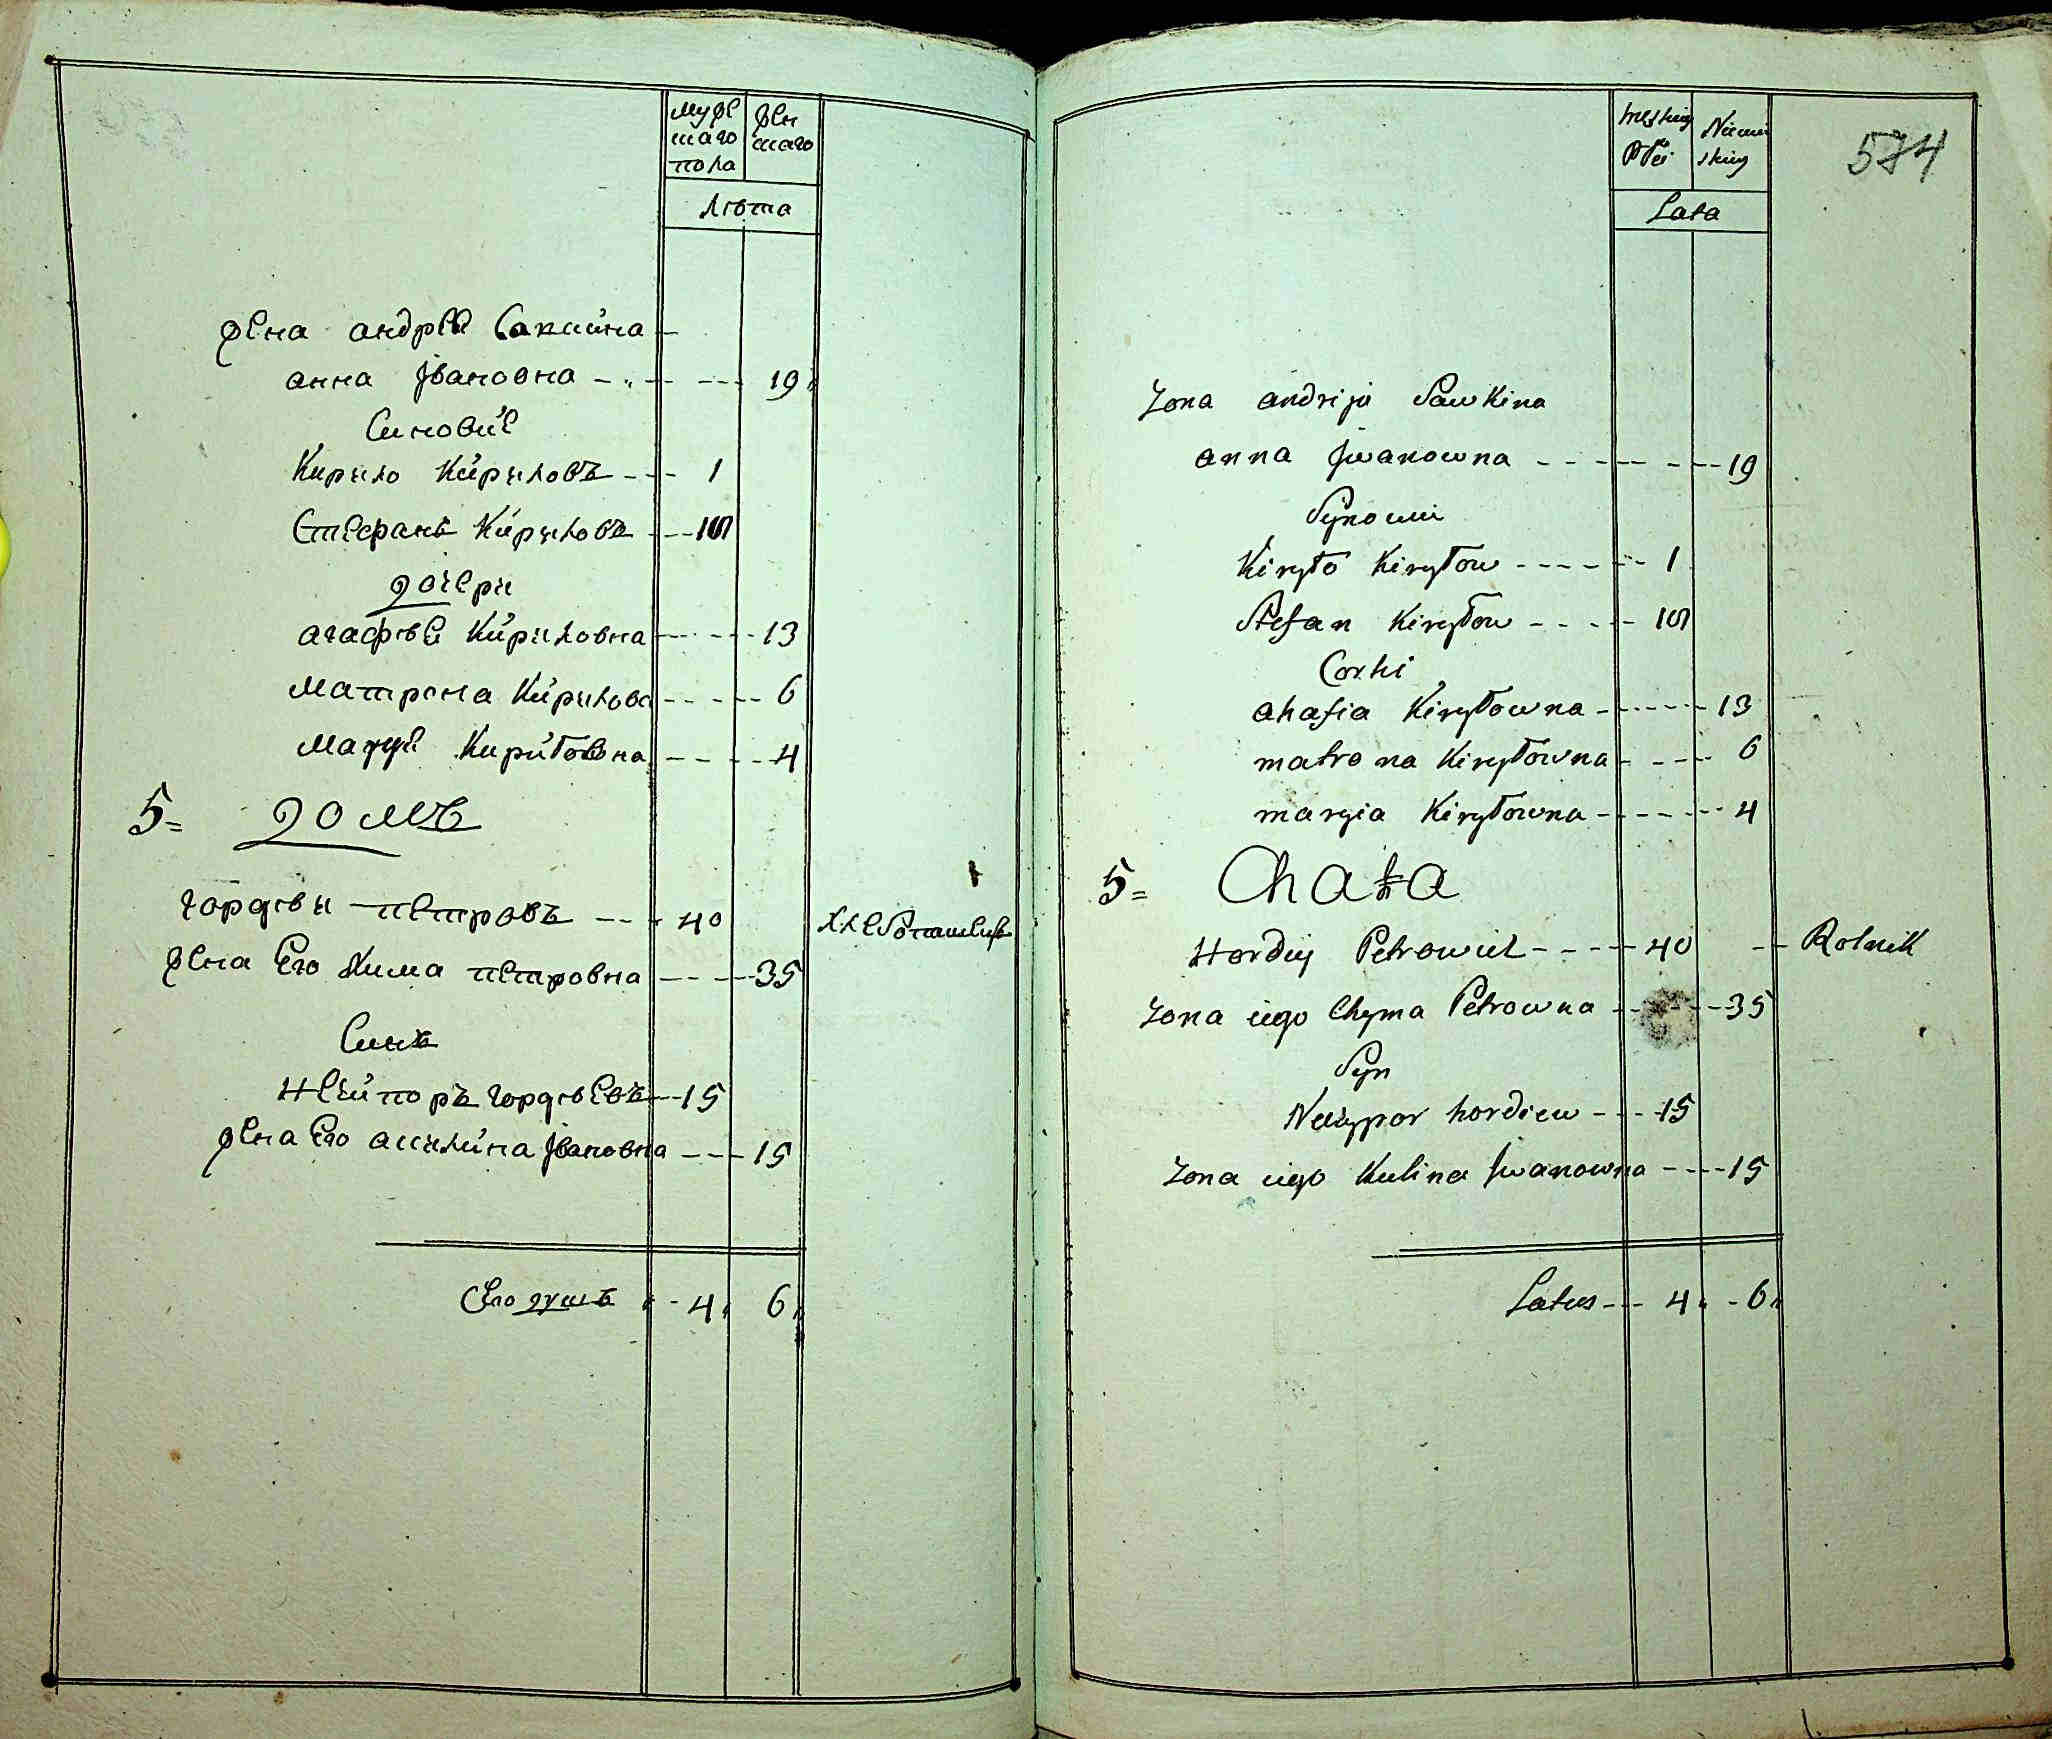 Муже
шаго
пола
Жен
шаго
Лѣта
Жена андрея Савкина
анна Jвановна 19
Синовѣе
Кирило Кирилов 1
Стефанъ Кириловъ 10
дочери
агафѣя Кириловна 13
Матрона Кирилова 6
Марyя Кириловна 4
5= домъ
гордѣи петровъ 40 хлебопашецъ
Жена Его Хима петровна 35
Синъ
неčипоръ гордѣевъ 15
Жена Его акилина Jвановна 15
Его душъ 4 6
574
męskiey
Płci
Niewie
skiey
Lata
Zona andrija Sawkina
anna Jwanowna 19
Synowie
Kiryło Kiryłow 1
Stefan Kiryłow 10
Corki
ahafia Kiryłowna 13
matrona Kiryłowna 6
maryia Kiryłowna 4
5= Chata
Hordiy Petrowicz 40 Rolnik
Zona iego Chyma Petrowna 35
Syn
Neczypor hordiew 15
Zona iego Kulina Jwanowna 15
Latus 4 6